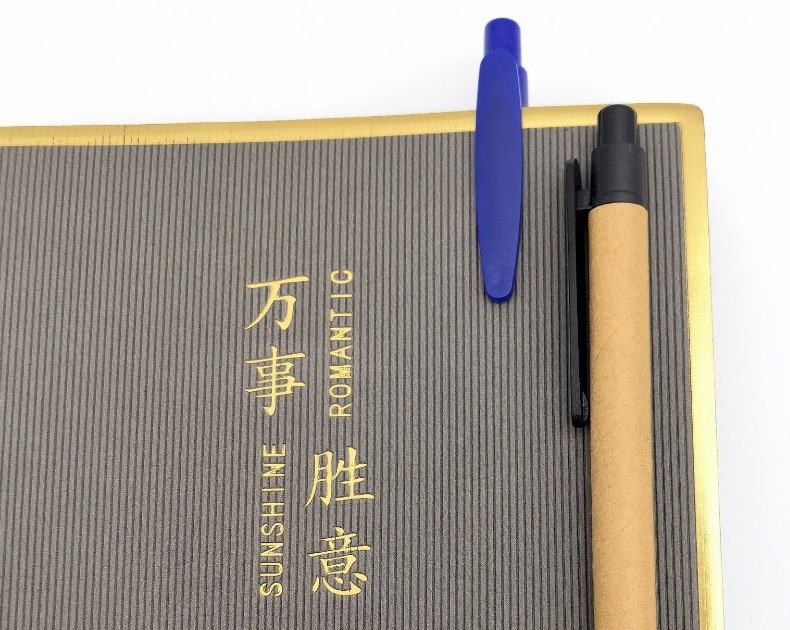 万事
ROMANTIC
SUNSHINE
胜意